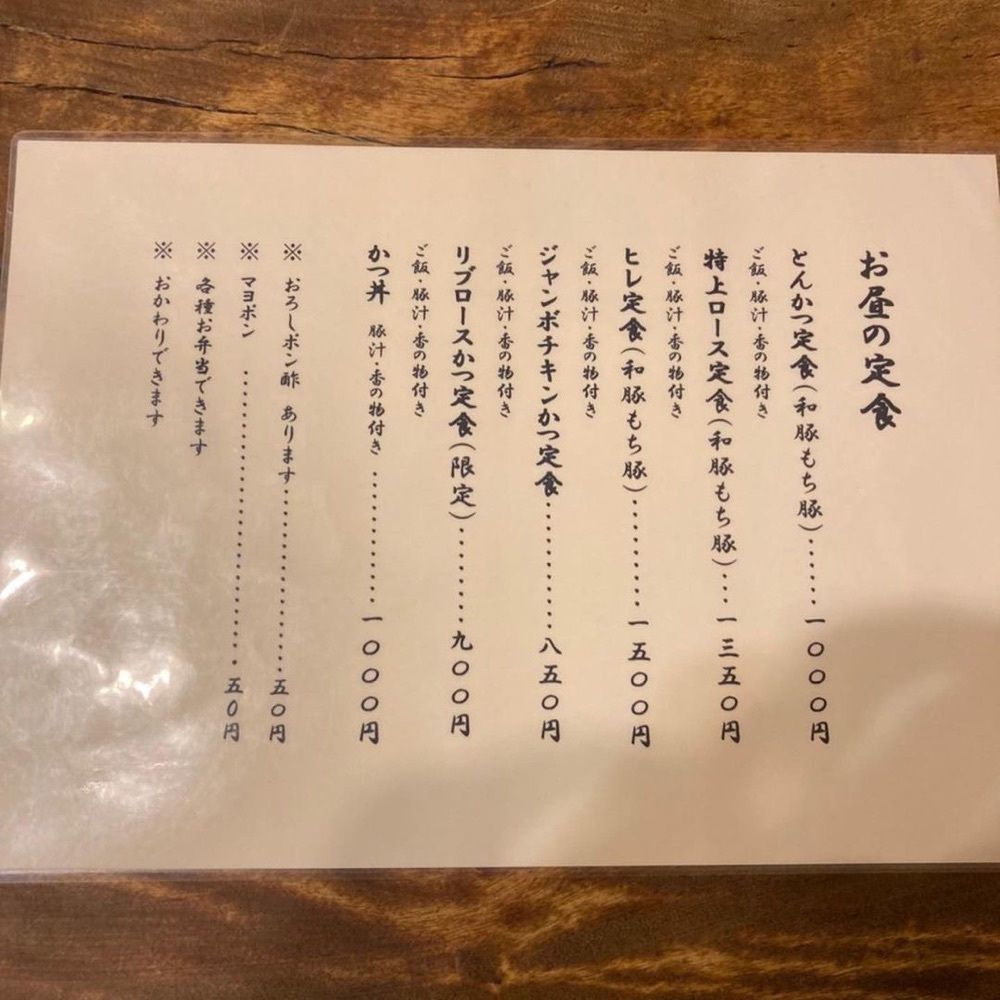 お昼の定食
とんかつ定食(和豚もち豚)......一〇〇〇円
ご飯・豚汁・香の物付き
特上ロース定食(和豚もち豚)...一三五〇円
ご飯・豚汁・香の物付き
ヒレ定食(和豚もち豚)..........一五〇〇円
ご飯・豚汁・香の物付き
ジャンボチキンかつ定食..........八五〇円
ご飯・豚汁・香の物付き
リブロースかつ定食(限定)........九〇〇円
ご飯・豚汁・香の物付き
かつ丼 豚汁・香の物付き..........一〇〇〇円
※ おろしポン酢 あります..................五〇円
※ マヨポン............................五〇円
※ 各種お弁当できます
※ おかわりできます